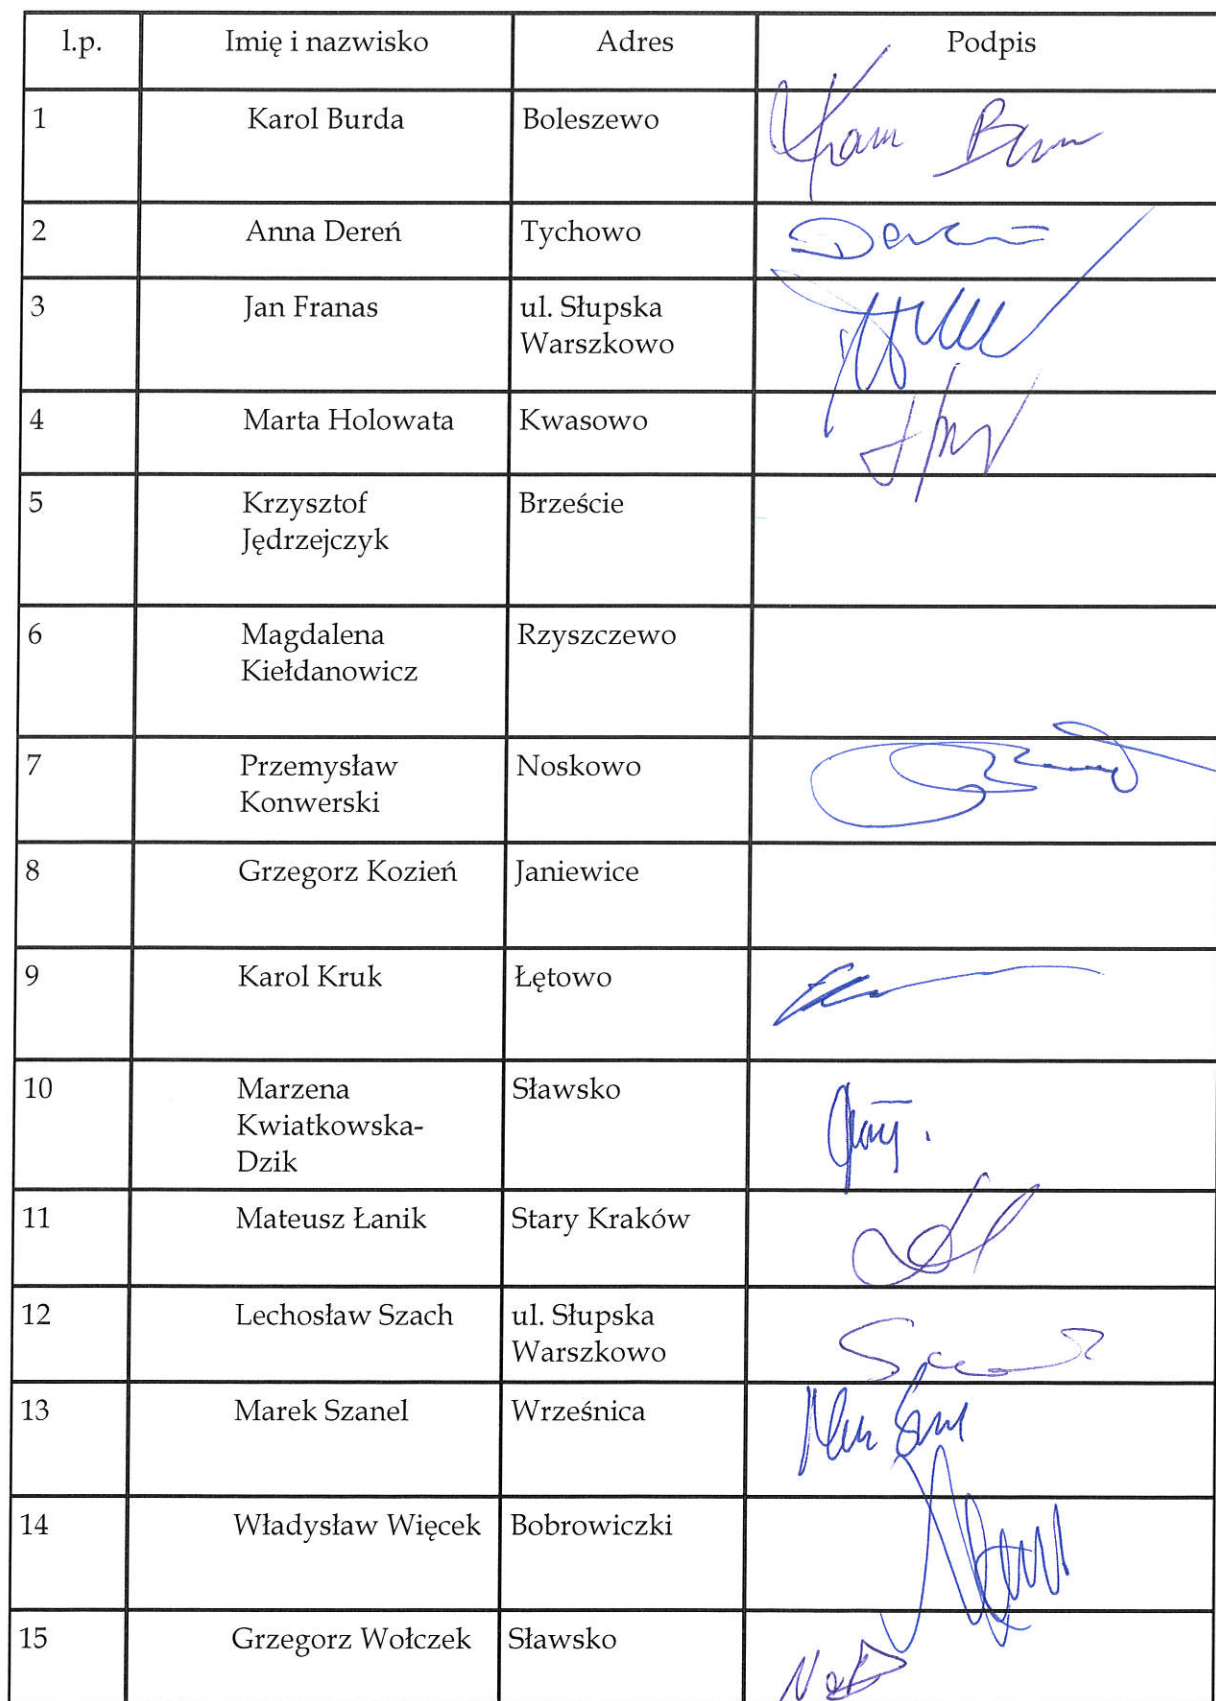 l.p. Imię i nazwisko Adres Podpis
1 Karol Burda Boleszewo
2 Anna Dereń Tychowo
3 Jan Franas ul. Słupska
Warszkowo
4 Marta Holowata Kwasowo
5 Krzysztof Brzeście
Jędrzejczyk
6 Magdalena Rzyszczewo
Kiełdanowicz
7 Przemysław Noskowo
Konwerski
8 Grzegorz Kozień Janiewice
9 Karol Kruk Łętowo
10 Marzena Sławsko
Kwiatkowska-
Dzik
11 Mateusz Łanik Stary Kraków
12 Lechosław Szach ul. Słupska
Warszkowo
13 Marek Szanel Wrześnica
14 Władysław Więcek Bobrowiczki
15 Grzegorz Wołczek Sławsko